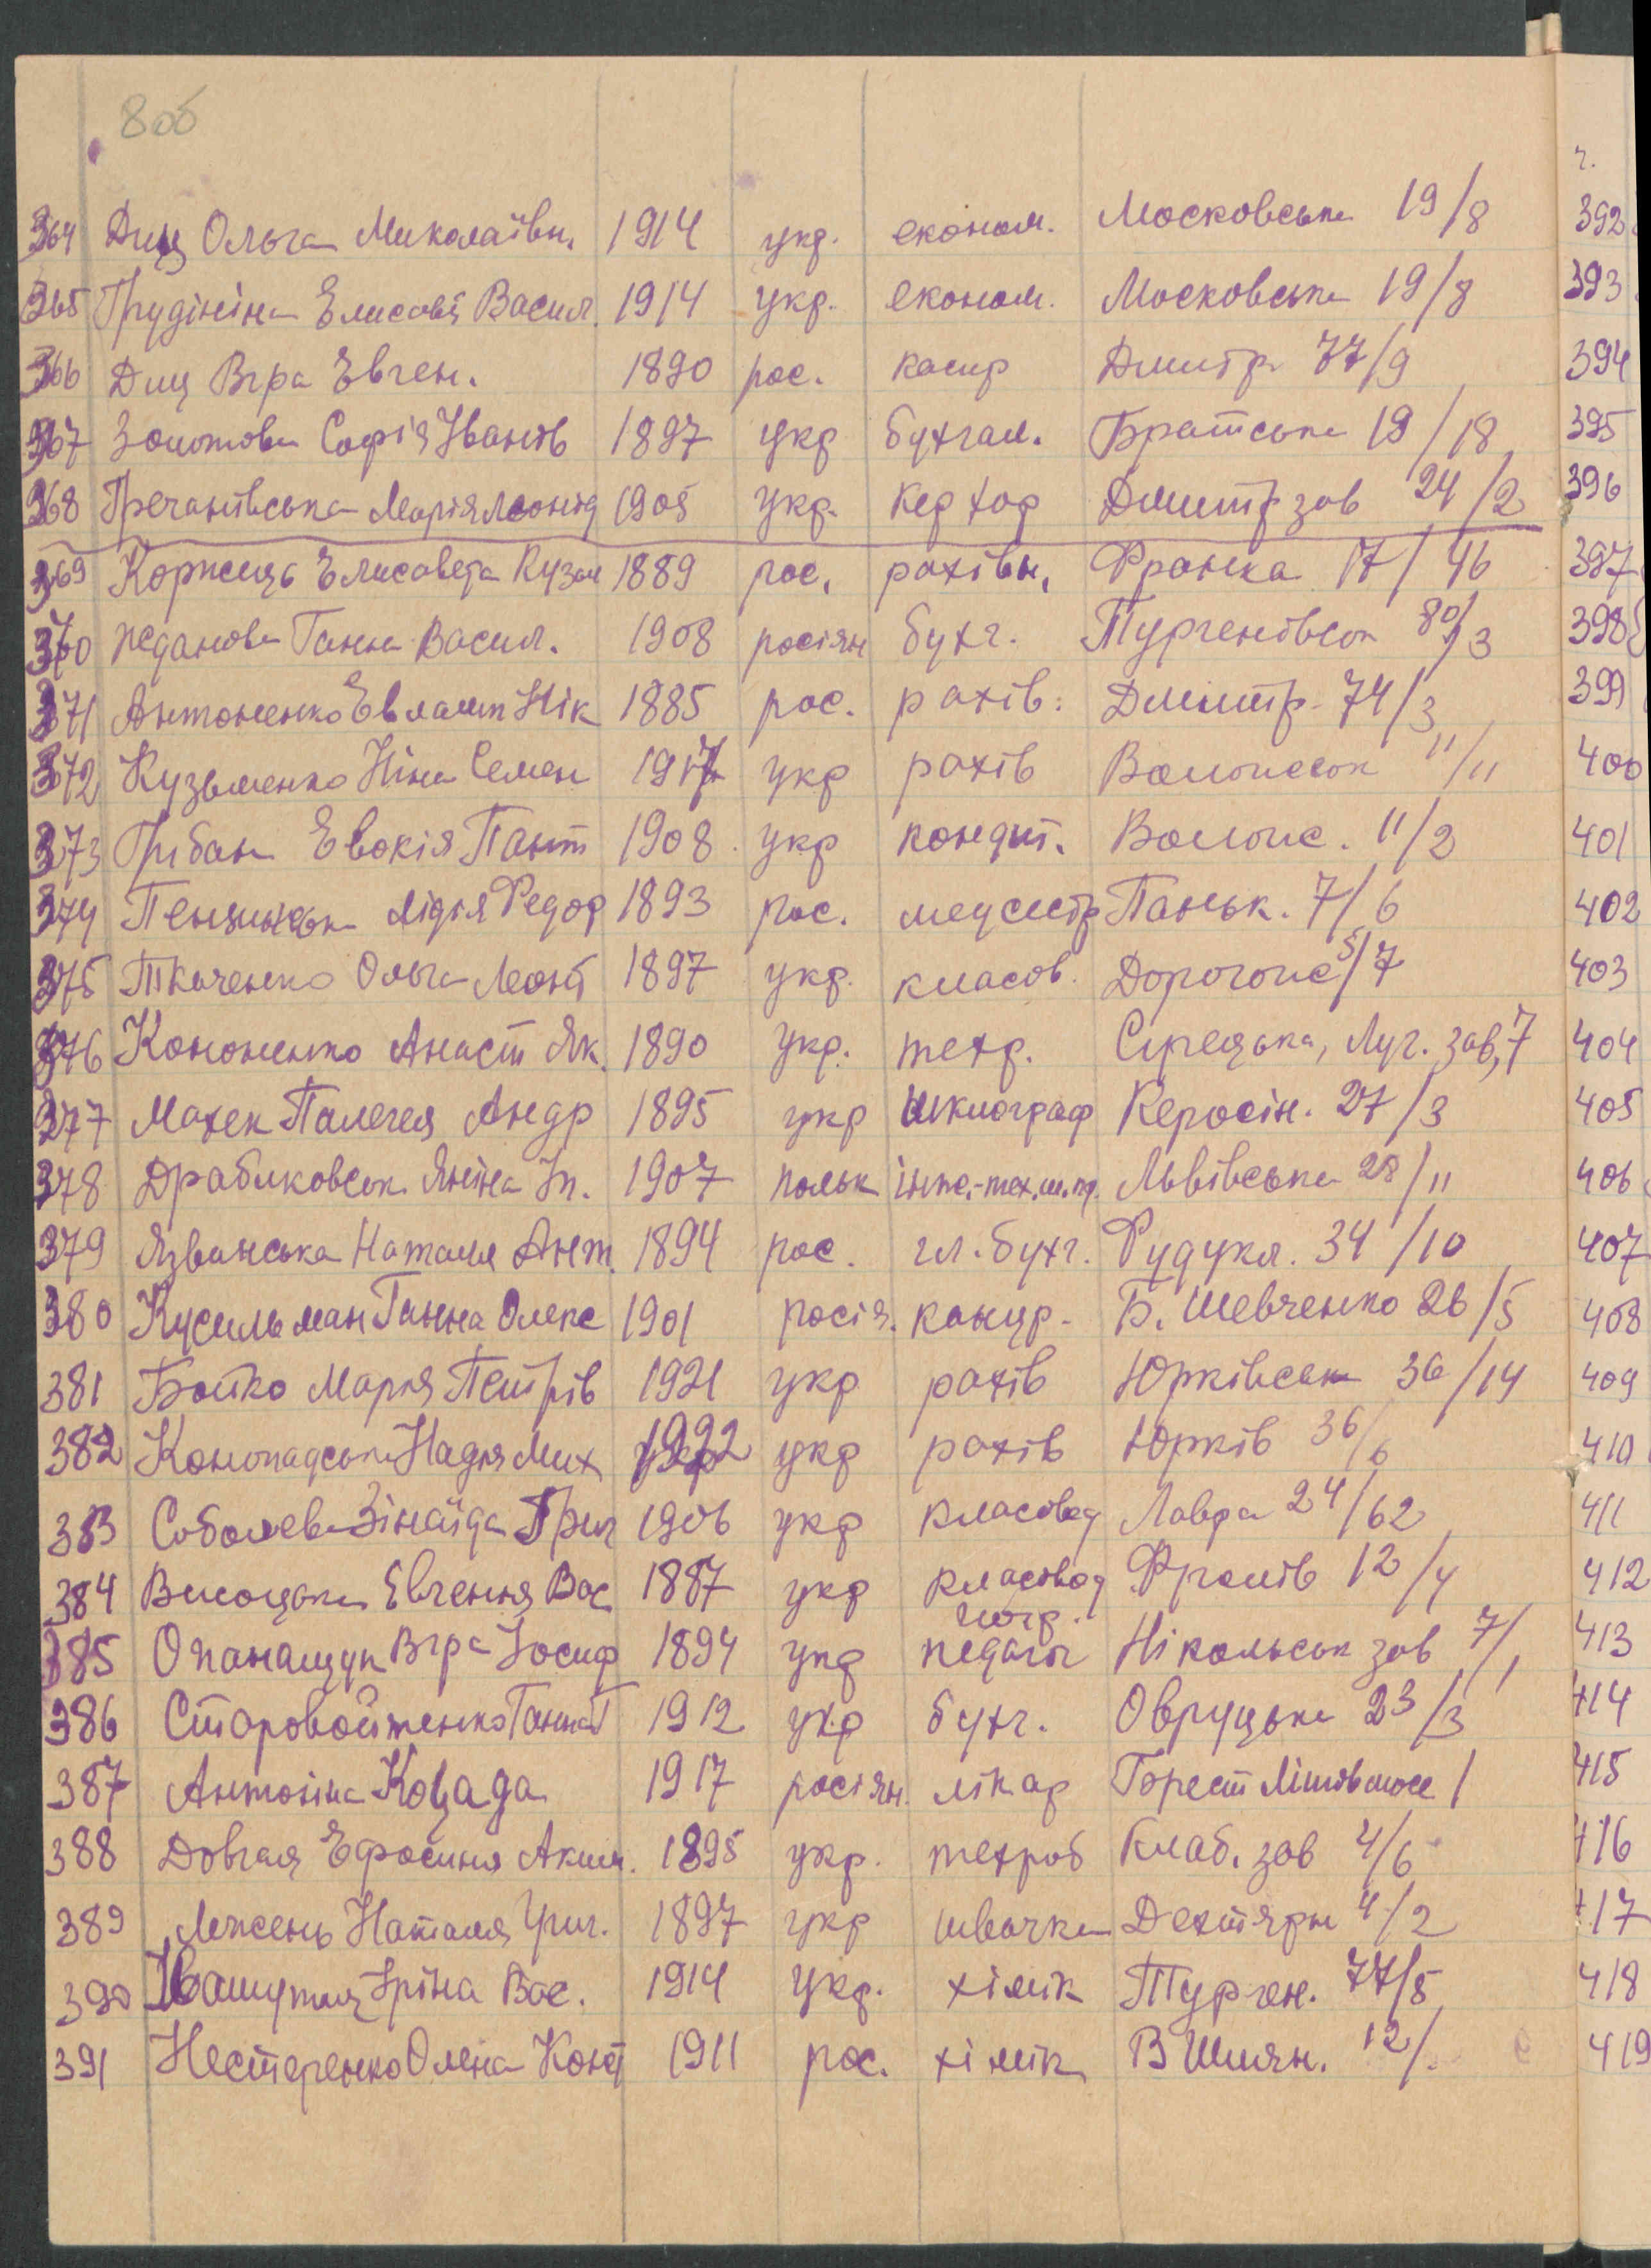 8 об
364 Диц Ольга Миколаївн. 1914 укр. економ. Московська 19/8
365 Грудініна Елисавĕ Васил. 1914 укр. економ. Московська 19/8
366 Диц Віра Евген. 1890 рос. касир Дмитр 77/9
367 Золотова Софія Іванів 1897 укр бухгал. Братська 19/18
368 Гречанівська Марія Леонід 1905 укр. Дмитр зав 24/2
369 Корнець Елисавета Кузм 1889 рос. рахівн. Франка 17/46
370 Жданова Ганна Васил. 1908 росіян бухг. Тургенівськ 80/3
371 Антоненко Евламп Нік 1885 рос. рахів: Дмитр. 74/3
372 Кузьменко Ніна Семен 1917 укр рахів Волоиськ 11/11
373 Грибан Евокія Пант 1908. укр кондит. Волоис. 11/2
374 Лідія Федор 1893 рос. медсестр Паньк. 7/6
375 Ткаченко Ольга Леонт 1897 укр. класов. Дорогоис 5/7
376 Кононенко Анаст Як. 1890 укр. техр. Сирецька, Луг. зав, 7
377 Махек Палегея Андр 1895 укр шклограф Керосін. 27/3
378 Драбиковськ. Яніна Іп. 1907 польк Львівська 28/11
379 Язванська Наталія Ант. 1894 рос. гл. бухг. 34/10
380 Кусильман Ганна Олекс 1901 росія. канцр. Б. Шевченко 26/5
381 Бойко Марія Петрів 1921 укр рахів Юрківськ 36/14
382 Конопадська Надія Мих 1922 укр рахів Юрків 36/6
383 Соболева Зінаїда Григ 1906 укр класовод Лавра 24/62
384 Висоцька Евгенія Вас 1887 укр класовод Фролів 12/4
385 Опанащук Віра Йосиф 1894 укр педагог Нікольськ зав 7/1
386 Старовойтенко Ганна Т 1912 укр бухг. Овруцька 23/3
387 Антоніна Коцада 1917 росіян. лікар Брест Літів шосе 1
388 Довгая Ефросиня Аким. 1895 укр. техроб Кмаб. зав 4/6
389 Лежень Наталія Григ. 1897 укр швачка Дехтярн 4/2
390 Івашутич Іріна Вас. 1914 укр. хімік Турген. 77/5
391 Нестеренко Олена Конт 1911 рос. хімік В Шиян. 12/.
г.
392
393
394
395
396
397
398
399
400
401
402
403
404
405
406
407
408
409
410
411
412
413
414
415
416
417
418
419